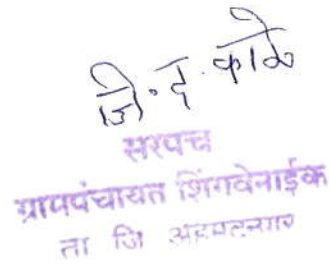 जि. द. काळे
सरपंच
ग्रामपंचायत शिंगवेनाईक
ता जि अहमदनगर